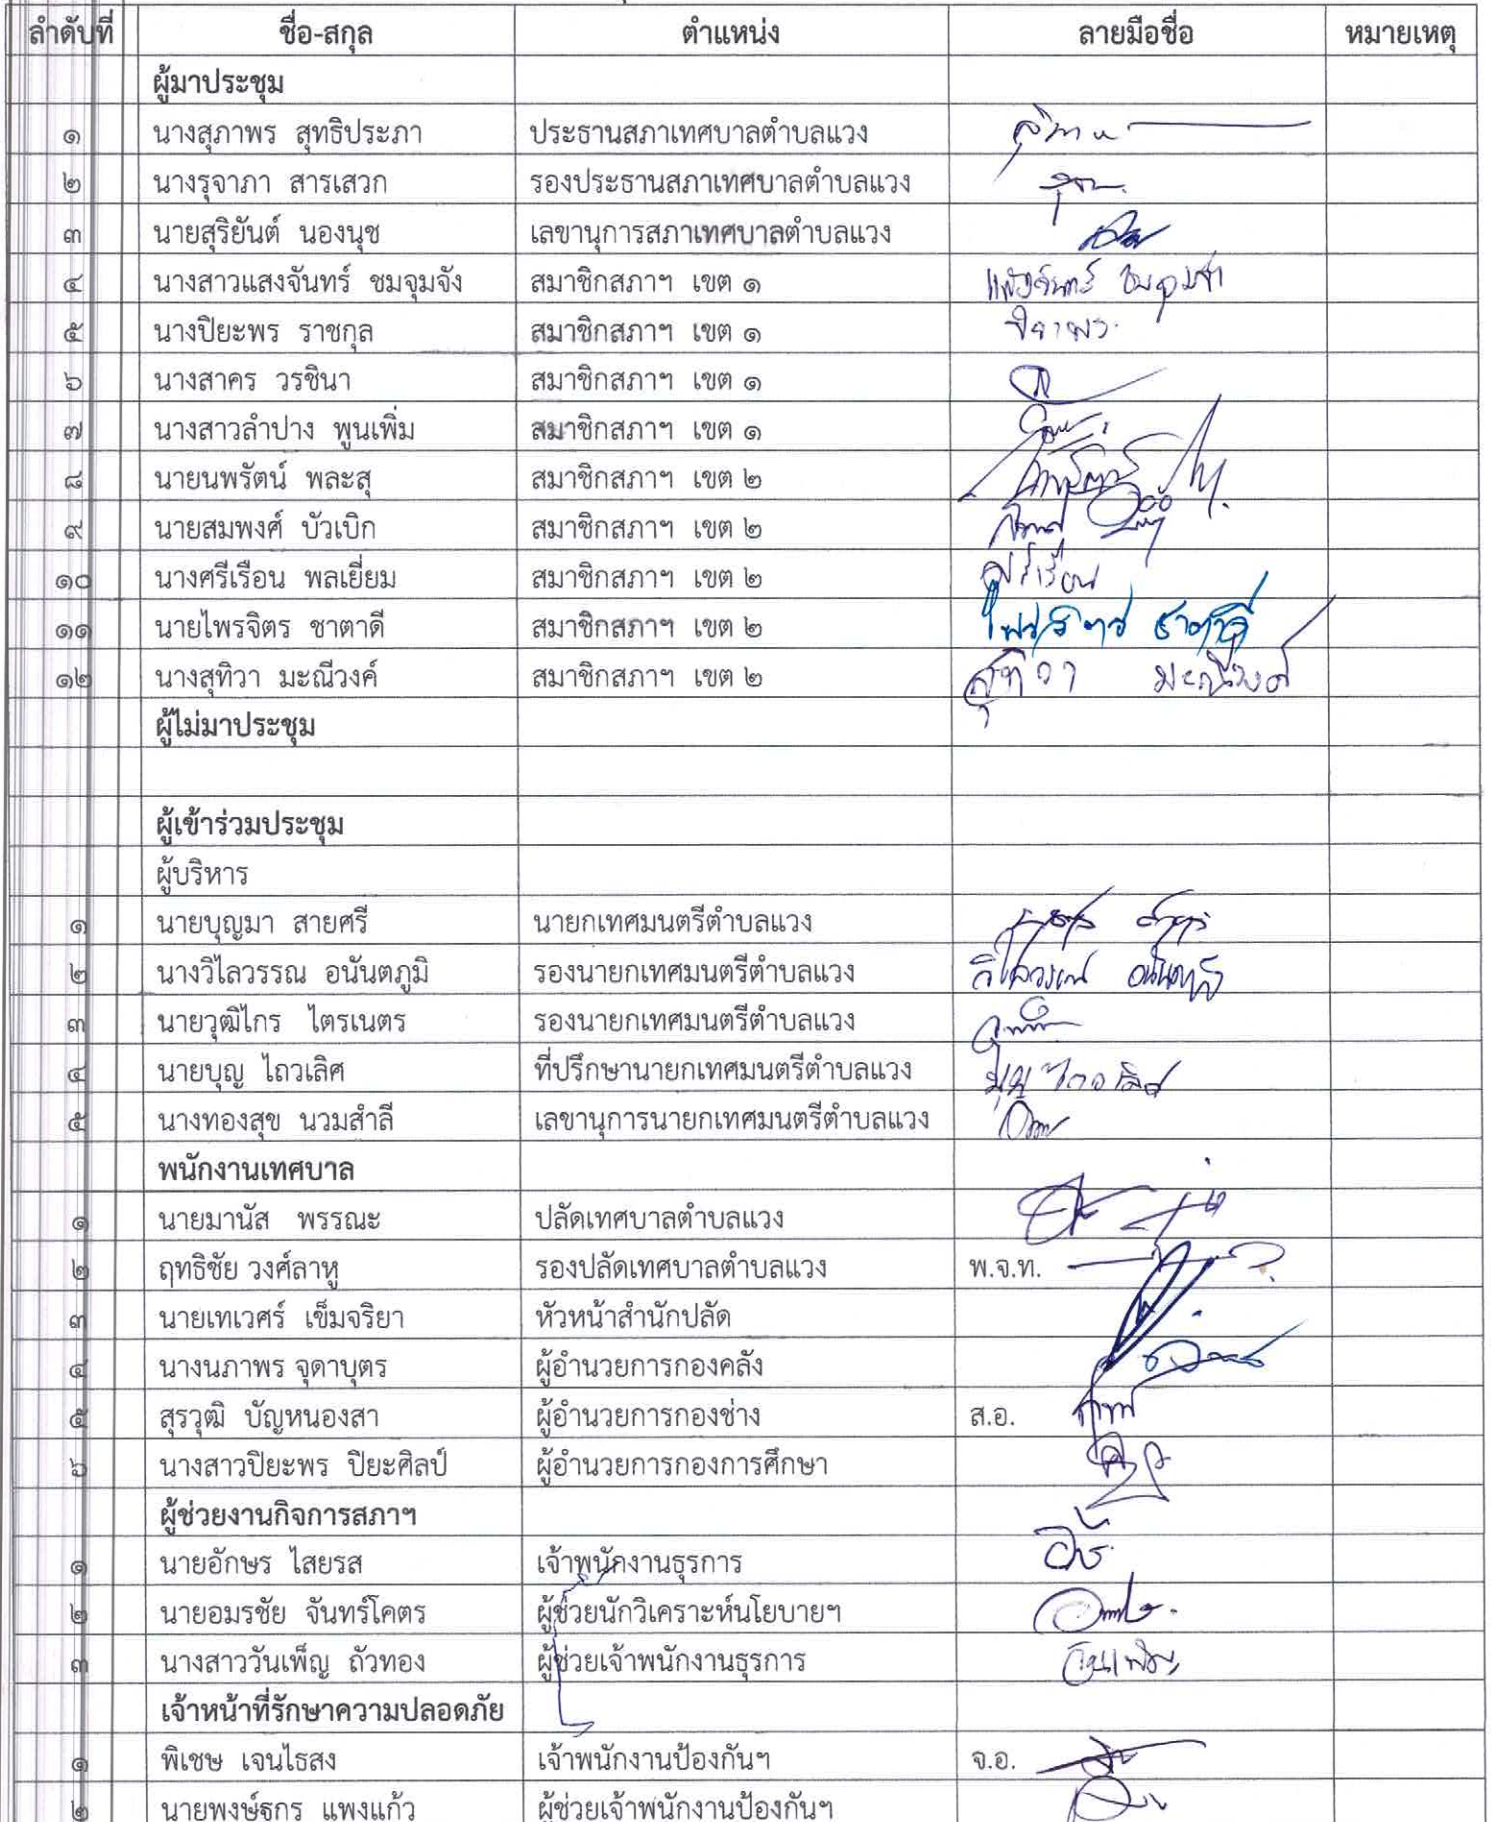 ลำดับที่ ชื่อ-สกุล ตำแหน่ง ลายมือชื่อ หมายเหตุ
ผู้มาประชุม
๑ นางสุภาพร สุทธิประภา ประธานสภาเทศบาลตำบลแวง
๒ นางรุจาภา สารเสวก รองประธานสภาเทศบาลตำบลแวง
๓ นายสุริยันต์ นองนุช เลขานุการสภาเทศบาลตำบลแวง
๔ นางสาวแสงจันทร์ ชมจุมจัง สมาชิกสภาฯ เขต ๑ แสงจันทร์ ชมจุมจัง
๕ นางปิยะพร ราชกุล สมาชิกสภาฯ เขต ๑
๖ นางสาคร วรชินา สมาชิกสภาฯ เขต ๑
๗ นางสาวลำปาง พูนเพิ่ม สมาชิกสภาฯ เขต ๑
๘ นายนพรัตน์ พละสุ สมาชิกสภาฯ เขต ๒
๙ นายสมพงศ์ บัวเบิก สมาชิกสภาฯ เขต ๒
๑๐ นางศรีเรือน พลเยี่ยม สมาชิกสภาฯ เขต ๒ ศรีเรือน
๑๑ นายไพรจิตร ชาตาดี สมาชิกสภาฯ เขต ๒ ไพรจิตร ชาตาดี
๑๒ นางสุทิวา มะณีวงค์ สมาชิกสภาฯ เขต ๒ สุทิวา มะณีวงค์
ผู้ไม่มาประชุม
ผู้เข้าร่วมประชุม
ผู้บริหาร
๑ นายบุญมา สายศรี นายกเทศมนตรีตำบลแวง
๒ นางวิไลวรรณ อนันตภูมิ รองนายกเทศมนตรีตำบลแวง วิไลวรรณ
๓ นายวุฒิไกร ไตรเนตร รองนายกเทศมนตรีตำบลแวง
๔ นายบุญ ไถวเลิศ ที่ปรึกษานายกเทศมนตรีตำบลแวง บุญ ไถวเลิศ
๕ นางทองสุข นวมสำลี เลขานุการนายกเทศมนตรีตำบลแวง
พนักงานเทศบาล
๑ นายมานัส พรรณะ ปลัดเทศบาลตำบลแวง
๒ ฤทธิชัย วงศ์ลาหู รองปลัดเทศบาลตำบลแวง พ.จ.ท.
๓ นายเทเวศร์ เข็มจริยา หัวหน้าสำนักปลัด
๔ นางนภาพร จุดาบุตร ผู้อำนวยการกองคลัง
๕ สุรวุฒิ บัญหนองสา ผู้อำนวยการกองช่าง ส.อ.
๖ นางสาวปิยะพร ปิยะศิลป์ ผู้อำนวยการกองการศึกษา
ผู้ช่วยงานกิจการสภาฯ
๑ นายอักษร ไสยรส เจ้าพนักงานธุรการ
๒ นายอมรชัย จันทร์โคตร ผู้ช่วยนักวิเคราะห์นโยบายฯ
๓ นางสาววันเพ็ญ ถัวทอง ผู้ช่วยเจ้าพนักงานธุรการ วันเพ็ญ
เจ้าหน้าที่รักษาความปลอดภัย
๑ พิเชษ เจนไธสง เจ้าพนักงานป้องกันฯ จ.อ.
๒ นายพงษ์ธกร แพงแก้ว ผู้ช่วยเจ้าพนักงานป้องกันฯ